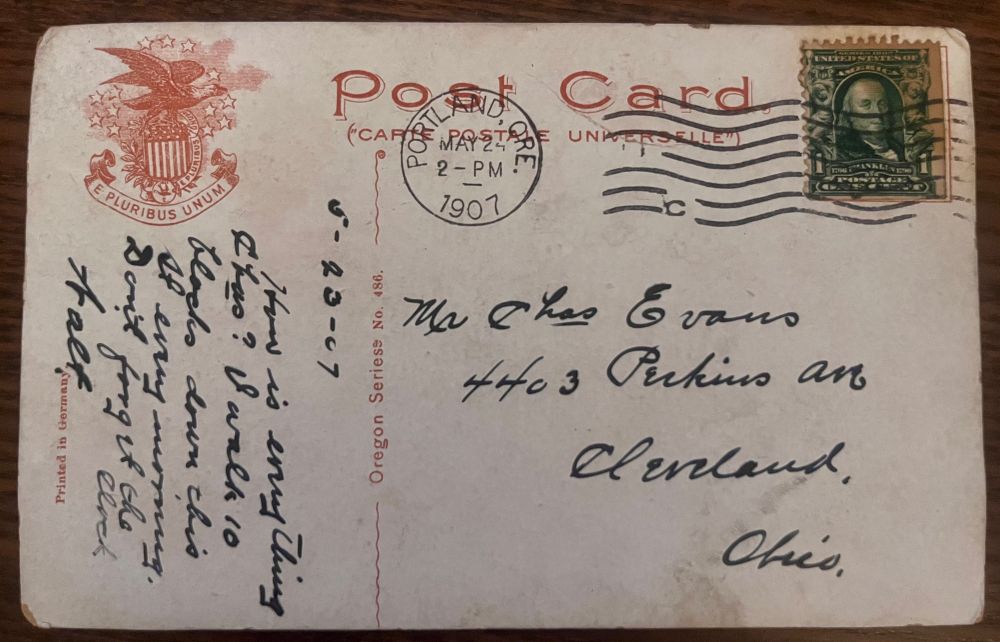 E PLURIBUS UNUM
Post Card.
("CARTE POSTALE UNIVERSELLE")
PORTLAND, ORE.
MAY 24
2-PM
1907
C
SERIES 1902
UNITED STATES OF
AMERICA
FRANKLIN
POSTAGE
5-23-07
How is every thing
Chas? I walk 10
blocks down this
st every morning.
Don't forget the
clock
Walt
Printed in Germany
Oregon Seriess No. 486.
Mr Chas Evans
4403 Perkins Ave
Cleveland,
Ohio.